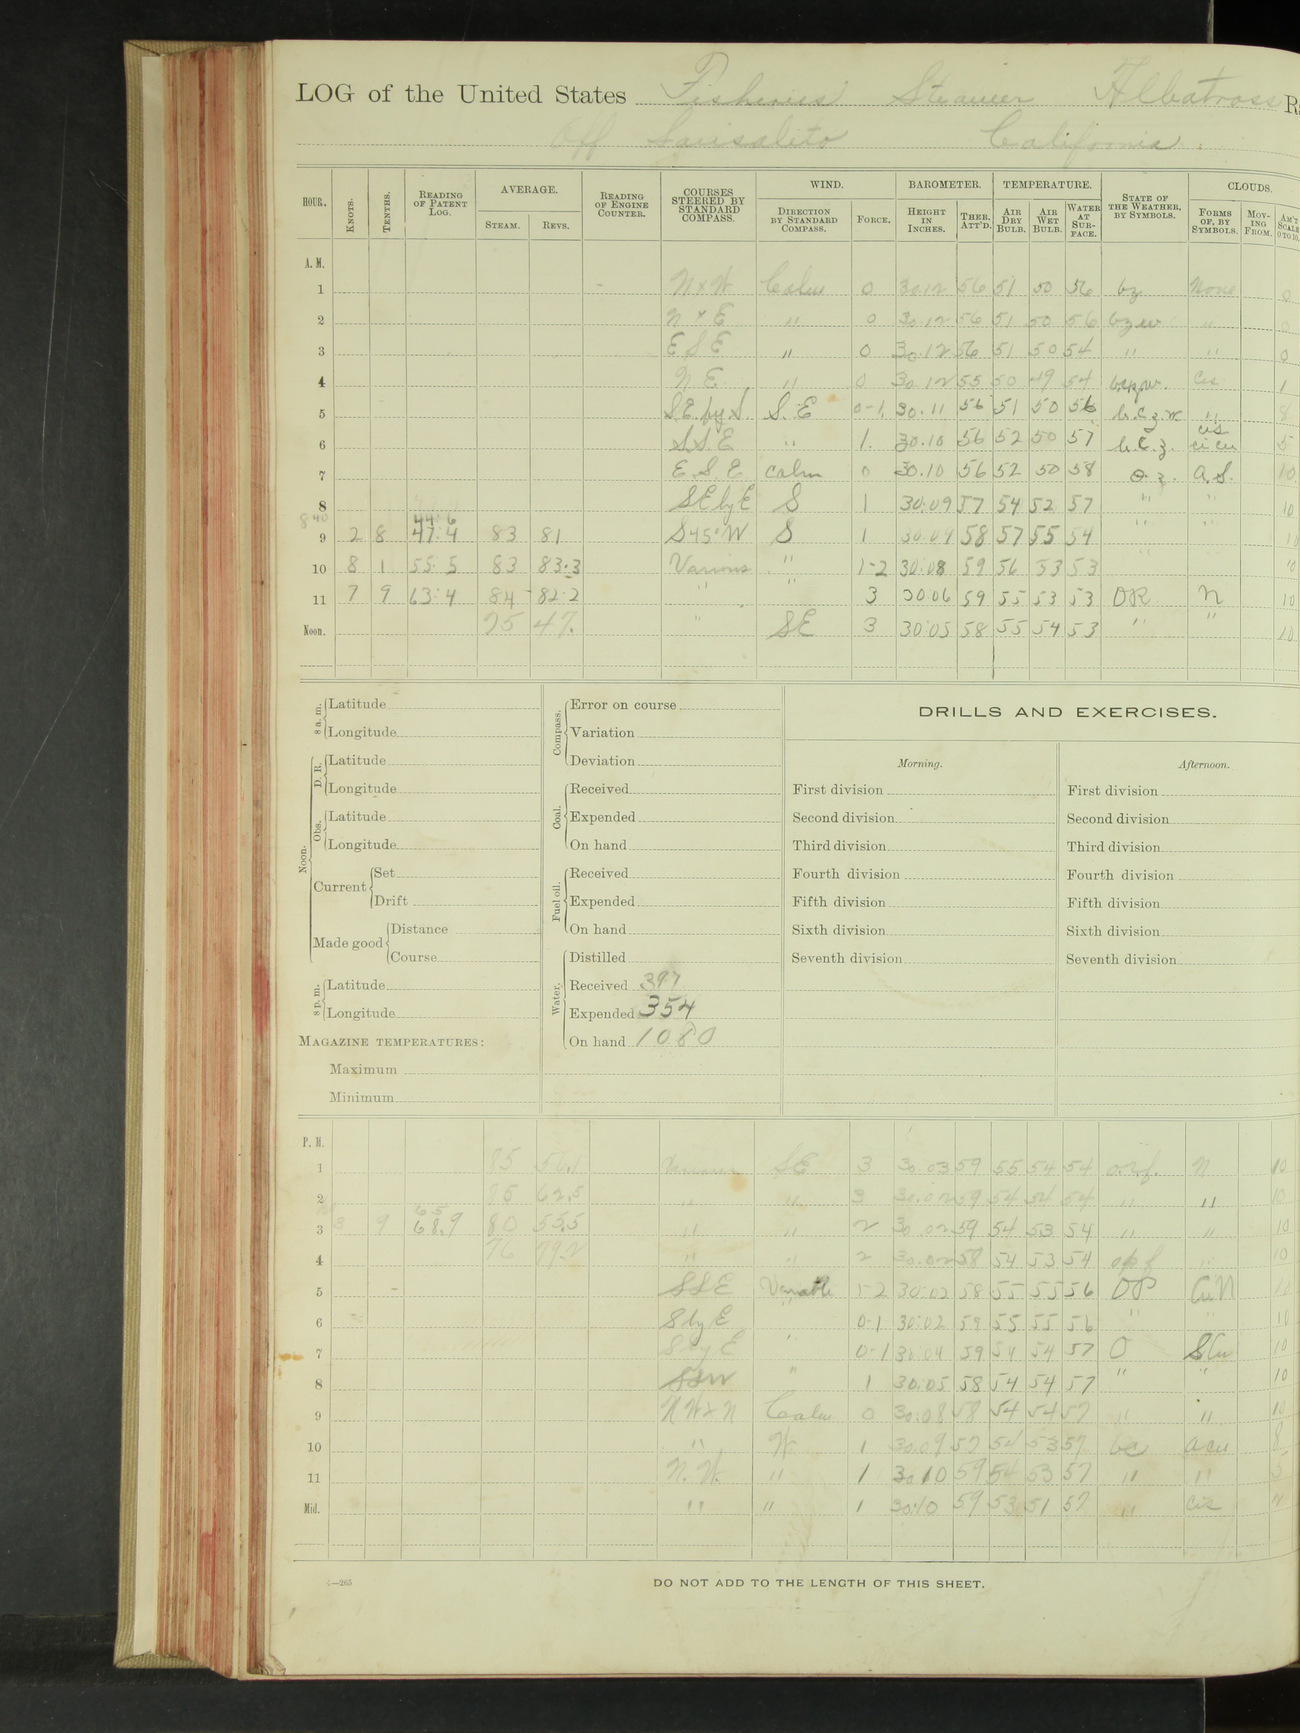 LOG of the United States Fisheries Steamer Albatross
Off Sausalito California.
HOUR. KNOTS. TENTHS. READING OF PATENT LOG. AVERAGE. STEAM. REVS. READING OF ENGINE COUNTER. COURSES STEERED BY STANDARD COMPASS. WIND. DIRECTION BY STANDARD COMPASS. FORCE. BAROMETER. HEIGHT IN INCHES. THER. ATT'D. TEMPERATURE. AIR DRY BULB. AIR WET BULB. WATER AT SURFACE. STATE OF THE WEATHER, BY SYMBOLS. CLOUDS. FORMS OF, BY SYMBOLS. MOVING FROM. AM'T SCALE 0 TO 10.
A. M.
1 N x W Calm 0 30.12 56 51 50 56 bz None 0
2 N x E " 0 30.12 56 51 50 56 bzw " 0
3 E S E " 0 30.12 56 51 50 54 " " 0
4 N E " 0 30.12 55 50 49 54 cis 1
5 S.E. by S. S. E 0-1 30.11 56 51 50 56 b.c.z.w " 8
6 S.S.E " 1. 30.10 56 52 50 57 b.c.z. cis ci cu 5
7 E. S. E calm 0 30.10 56 52 50 58 O. z. A.S. 10
8 SE by E S 1 30.09 57 54 52 57 " " 10
840 44.6
9 2 8 47.4 83 81 S 45° W S 1 30.09 58 57 55 54 " " 10
10 8 1 55.5 83 83.3 Various " 1-2 30.08 59 56 53 53 " 10
11 7 9 63.4 84 82.2 " " 3 30.06 59 55 53 53 OR N 10
Noon. 75 47. " SE 3 30.05 58 55 54 53 " " 10
8 a. m. Latitude
Longitude
Noon. D. R. Latitude
Longitude
Obs. Latitude
Longitude
Current Set
Drift
Made good Distance
Course
8 p. m. Latitude
Longitude
MAGAZINE TEMPERATURES:
Maximum
Minimum
Compass. Error on course
Variation
Deviation
Coal. Received
Expended
On hand
Fuel oil. Received
Expended
On hand
Water. Distilled
Received 397
Expended 354
On hand 1080
DRILLS AND EXERCISES.
Morning.
First division
Second division
Third division
Fourth division
Fifth division
Sixth division
Seventh division
Afternoon.
First division
Second division
Third division
Fourth division
Fifth division
Sixth division
Seventh division
P. M.
1 85 56.1 Various SE 3 30.03 59 55 54 54 N 10
2 85 62.5 " " 3 30.02 59 54 54 54 " " 10
65
3 3 9 68.9 80 55.5 " " 2 30.02 59 54 53 54 " " 10
4 76 79.2 " " 2 30.02 58 54 53 54 opf " 10
5 SSE Variable 1-2 30.02 58 55 55 56 OP CuN 10
6 S by E " 0-1 30.02 59 55 55 56 " " 10
7 S by E " 0-1 30.04 59 54 54 57 O SCu 10
8 SSW " 1 30.05 58 54 54 57 " " 10
9 N W x N Calm 0 30.08 58 54 54 57 " " 10
10 " W 1 30.09 57 54 53 57 bc acu 8
11 N. W. " 1 30.10 59 54 53 57 " " 5
Mid. " " 1 30.10 59 53 51 57 " cis
DO NOT ADD TO THE LENGTH OF THIS SHEET.